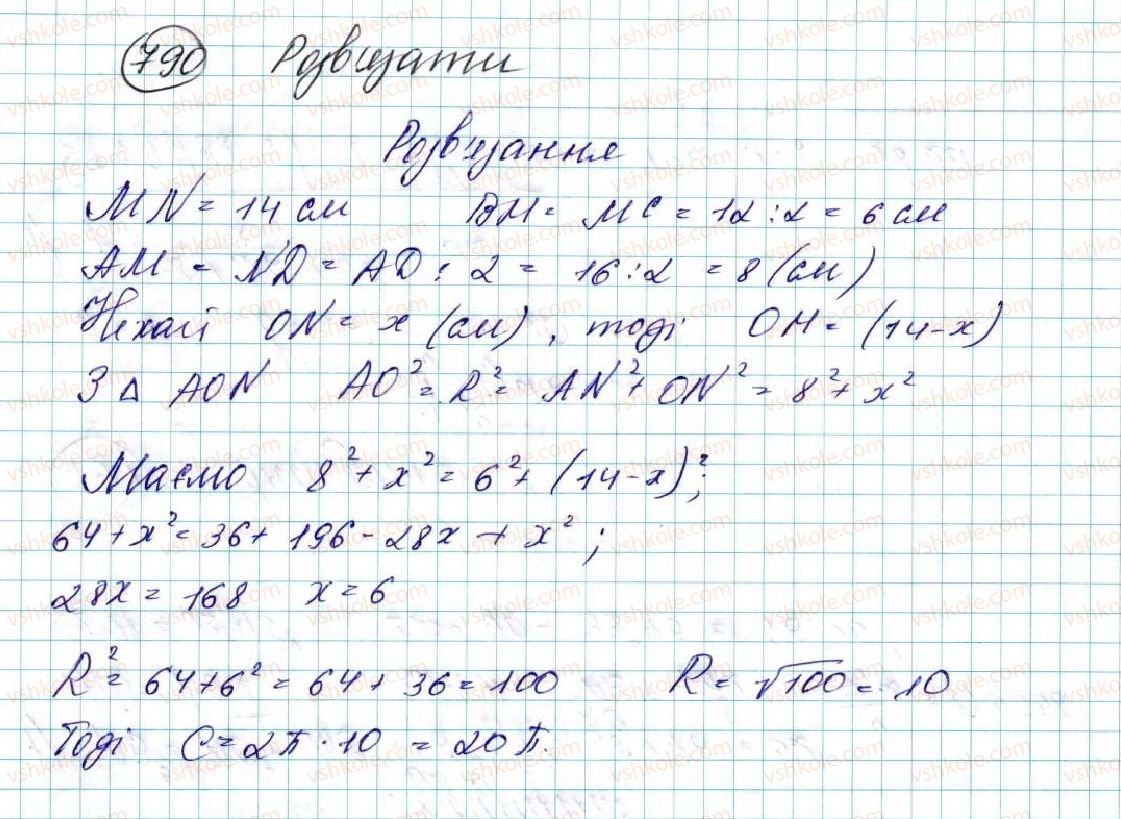 790 Розвязати
Розв'язання
MN = 14 см BM = MC = 12 : 2 = 6 см
AM = ND = AD : 2 = 16 : 2 = 8 (см)
Нехай ON = x (см), тоді OM = (14-x)
З Δ AON AO² = R² = AN² + ON² = 8² + x²
Маємо 8² + x² = 6² + (14-x)²;
64 + x² = 36 + 196 - 28x + x²;
28x = 168 x = 6
R² = 64 + 6² = 64 + 36 = 100 R = √100 = 10
Тоді C = 2π · 10 = 20π.